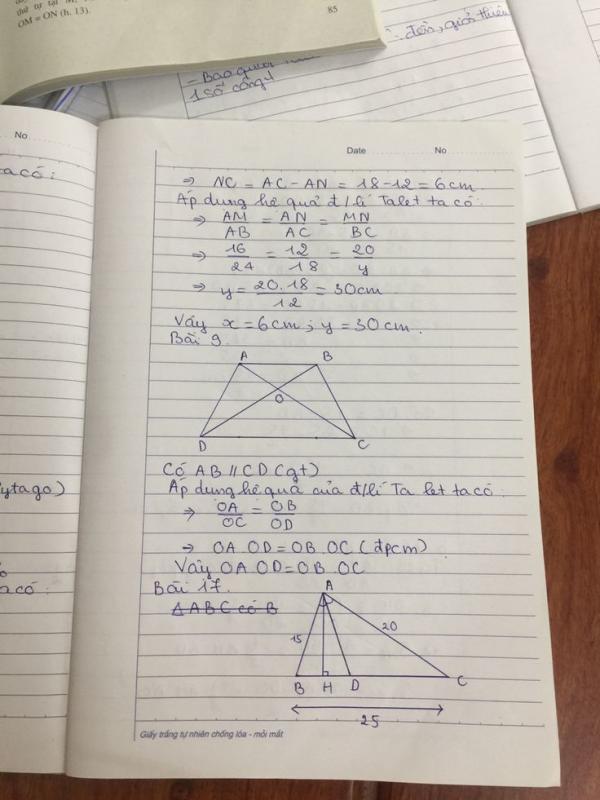 thứ tự tại M,
OM = ON (h. 13).
85
đôn, giả thiên
= Bao quát
1 số công
No
Date No
a có:
⇒ NC = AC - AN = 18 - 12 = 6 cm.
Áp dụng hệ quả đ/lí Talet ta có:
⇒ AM/AB = AN/AC = MN/BC
⇒ 16/24 = 12/18 = 20/y
⇒ y = 20.18/12 = 30cm
Vậy x = 6cm; y = 30cm.
Bài 9.
A B
O
D C
Có AB // CD (gt)
ytago)
Áp dụng hệ quả của đ/lí Ta let ta có:
⇒ OA/OC = OB/OD
⇒ OA.OD = OB.OC (đpcm)
Vậy OA.OD = OB.OC
a có:
Bài 17.
A
ΔABC có B
15 20
B H D C
25
Giấy trắng tự nhiên chống lóa - mỏi mắt